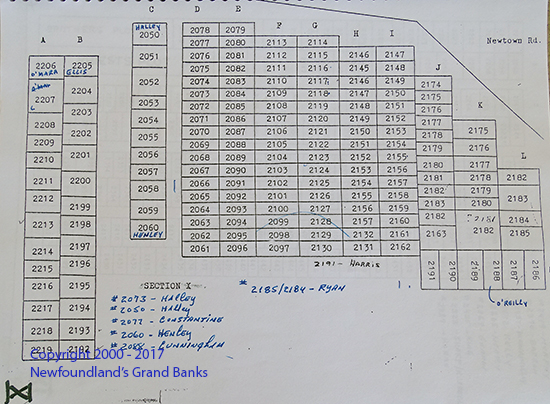 C D E
A B F G H I J K L
Newtown Rd.
2206 O'MARA
2207
2208
2209
2210
2211
2212
2213
2214
2215
2216
2217
2218
2219
2205 ELLIS
2204
2203
2202
2201
2200
2199
2198
2197
2196
2195
2194
2193
2192
HALLEY
2050
2051
2052
2053
2054
2055
2056
2057
2058
2059
2060
HENLEY
2078 2079
2077 2080 2113 2114
2076 2081 2112 2115 2146 2147
2075 2082 2111 2116 2145 2148
2074 2083 2110 2117 2146 2149
2073 2084 2109 2118 2147 2150
2072 2085 2108 2119 2148 2151
2071 2086 2107 2120 2149 2152
2070 2087 2106 2121 2150 2153
2069 2088 2105 2122 2151 2154
2068 2089 2104 2123 2152 2155
2067 2090 2103 2124 2153 2156
2066 2091 2102 2125 2154 2157
2065 2092 2101 2126 2155 2158
2064 2093 2100 2127 2156 2159
2063 2094 2099 2128 2157 2160
2062 2095 2098 2129 2132 2161
2061 2096 2097 2130 2131 2162
2174
2175
2176
2177
2178
2179
2180
2181
2182
2183
2182
2163
2175
2176
2177
2178
2179
2180
2181
2182
2182
2183
2184
2185
2191 2190 2189 2188 2187 2186
O'REILLY
2191 - HARRIS
SECTION X
# 2185/2184 - RYAN
# 2073 - HALLEY
# 2050 - HALLEY
# 2077 - CONSTANTINE
# 2060 - HENLEY
# 2058 - CUNNINGHAM
Copyright 2000 - 2017
Newfoundland's Grand Banks